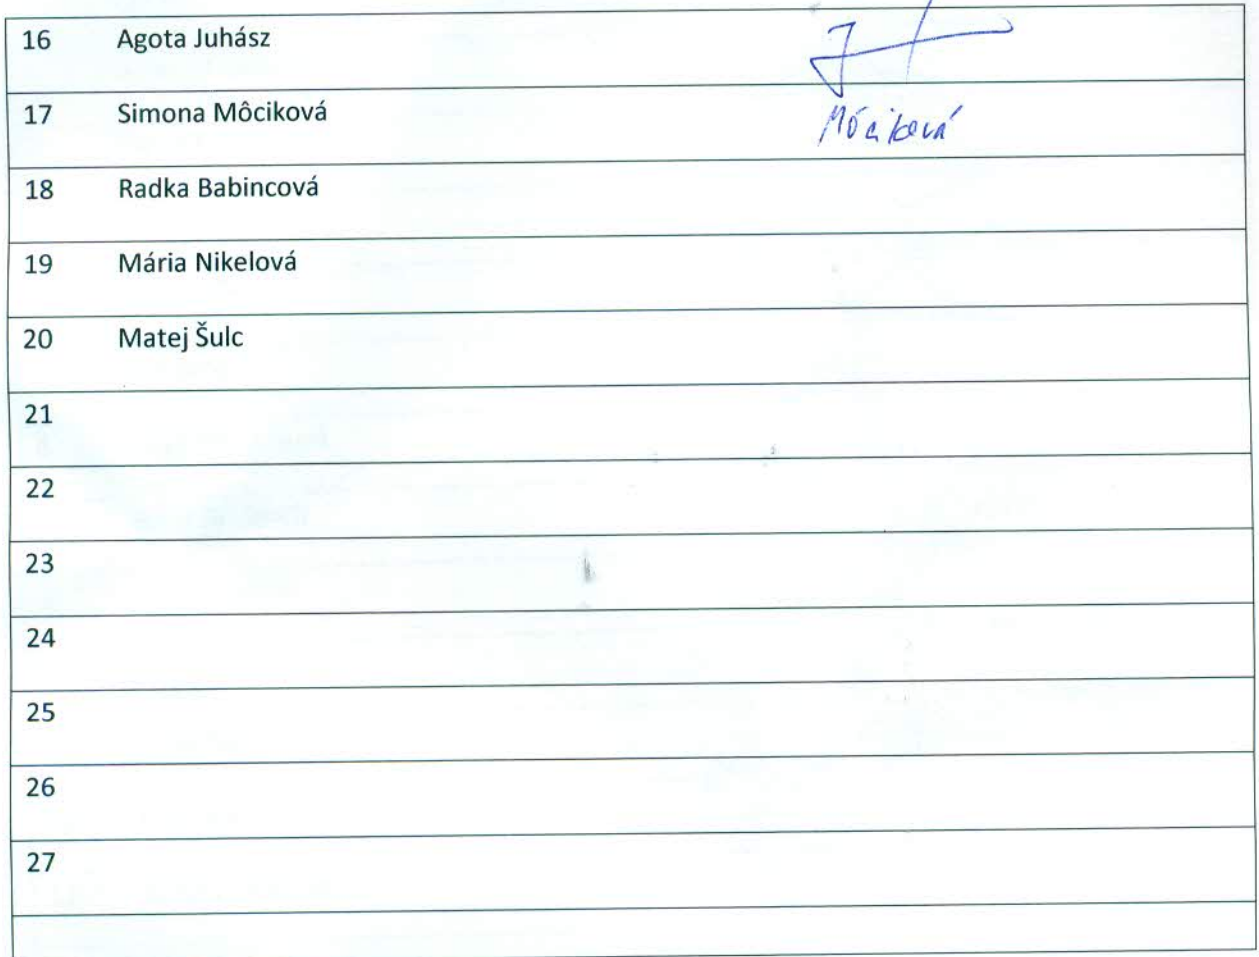 16 Agota Juhász
17 Simona Môciková Môciková
18 Radka Babincová
19 Mária Nikelová
20 Matej Šulc
21
22
23
24
25
26
27